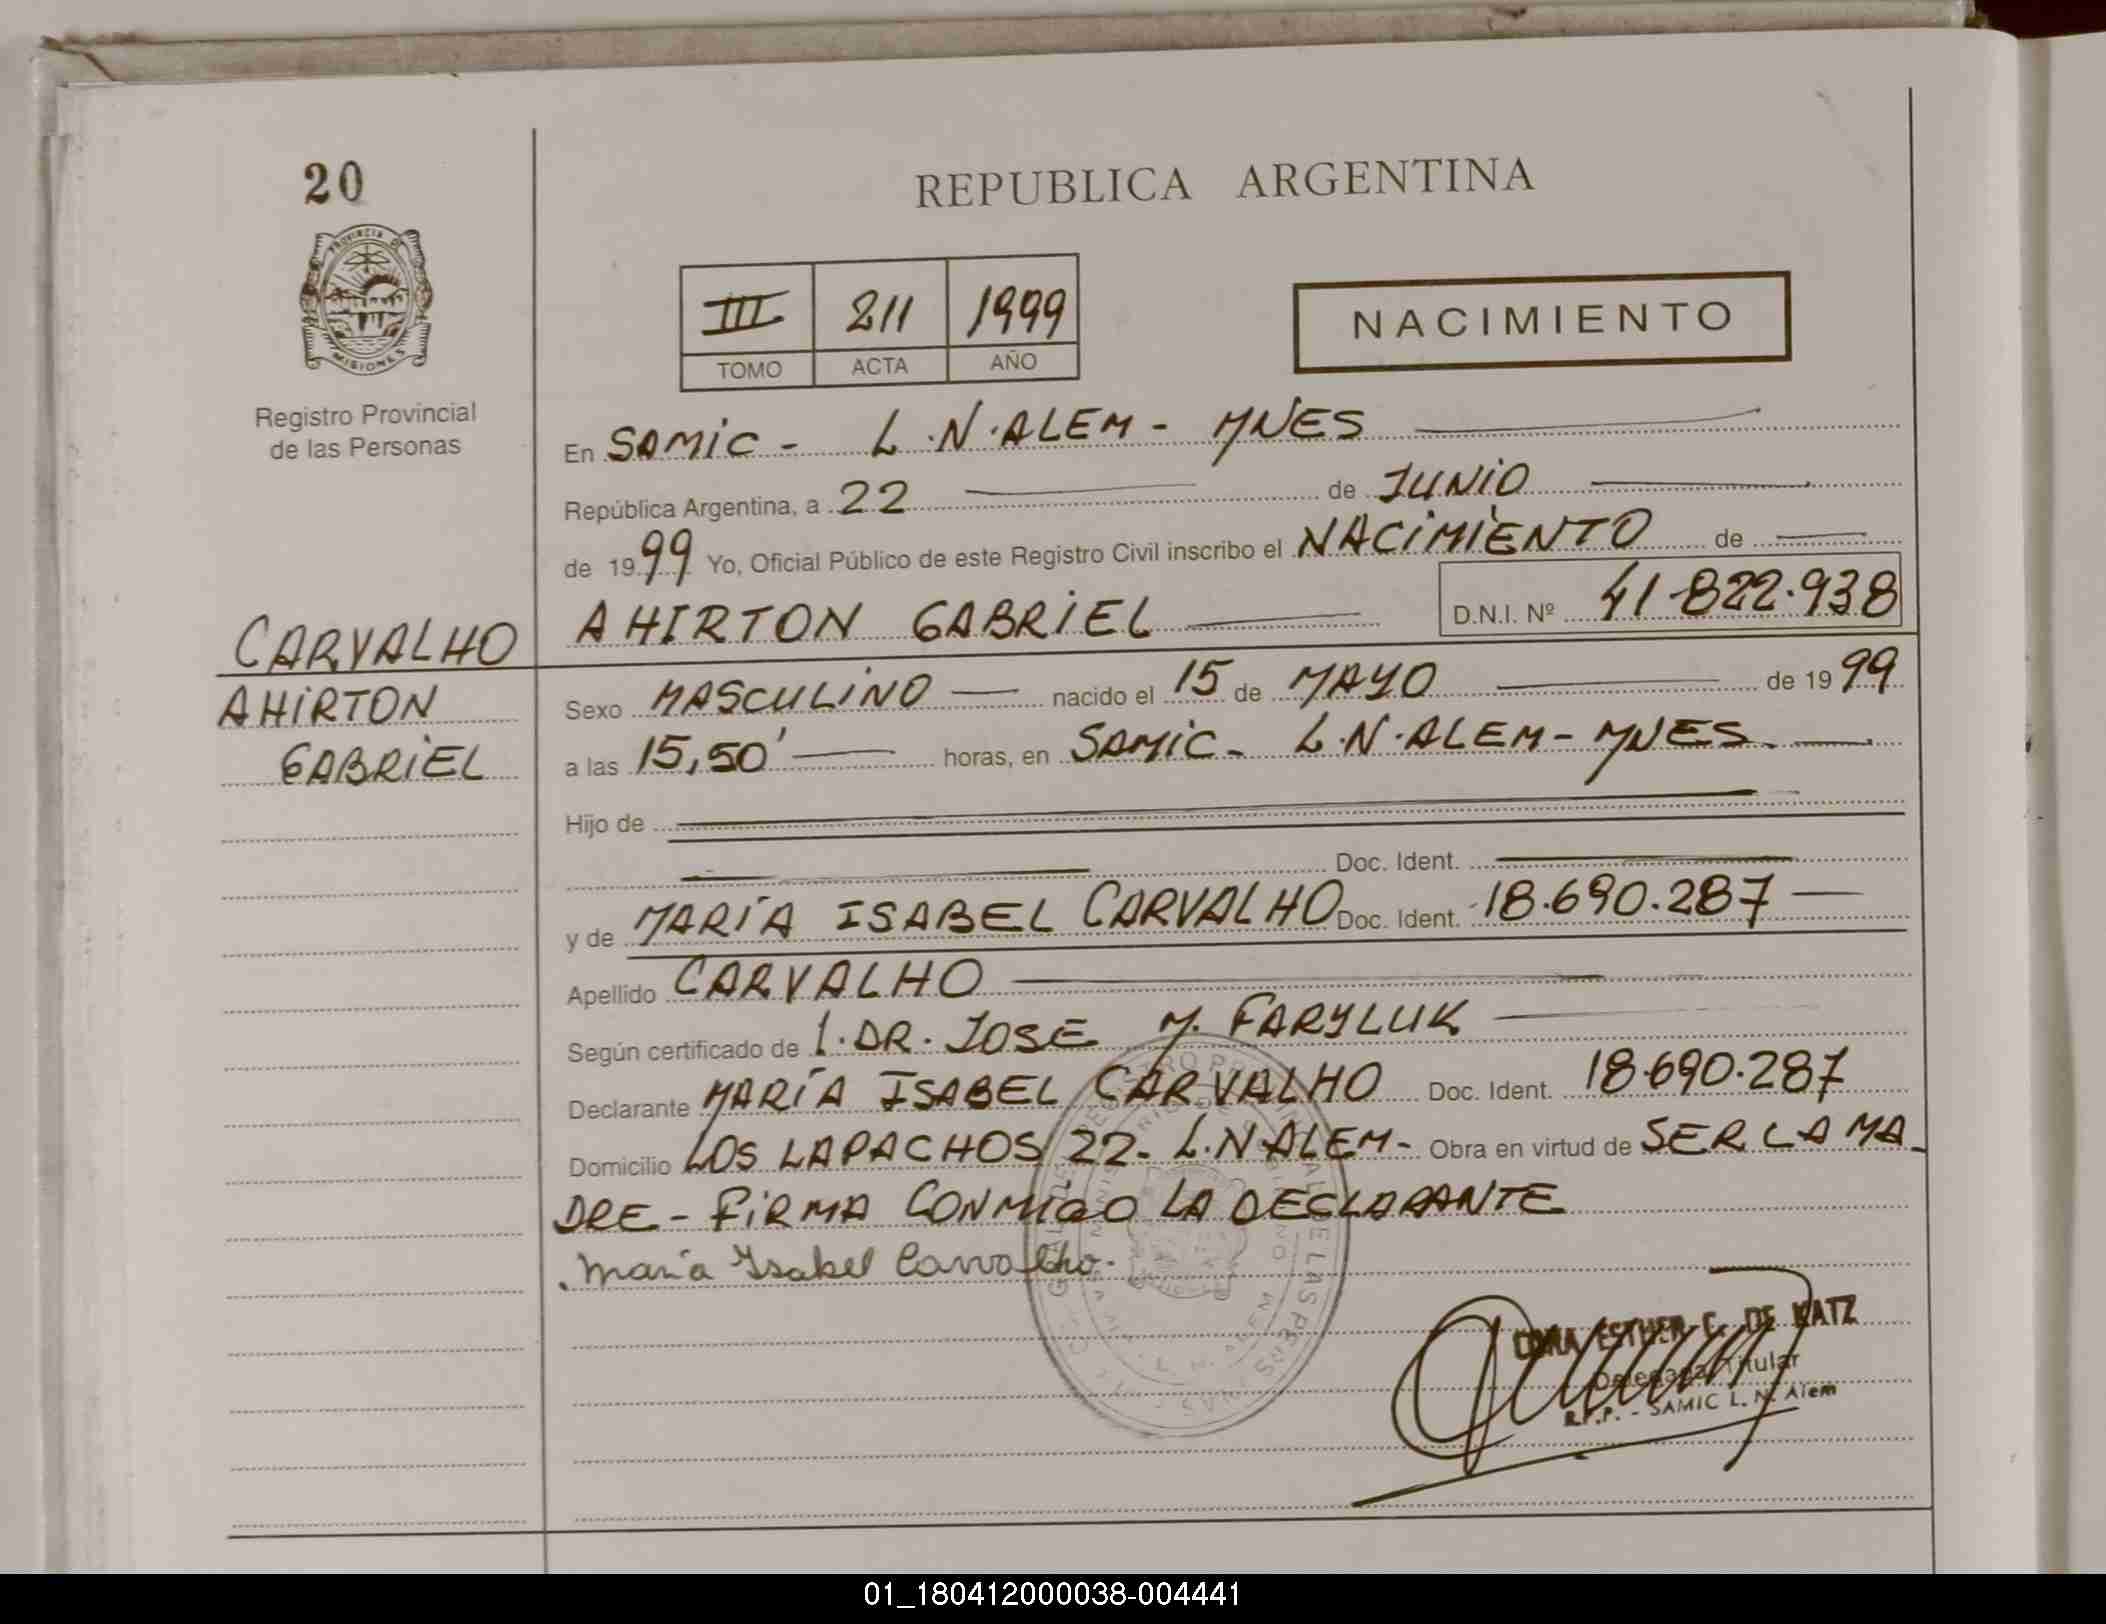 20
REPUBLICA ARGENTINA
PROVINCIA DE
MISIONES
III 211 1999
TOMO ACTA AÑO
NACIMIENTO
Registro Provincial
de las Personas
En SAMIC - L.N.ALEM - MNES
República Argentina, a 22 de JUNIO
de 1999 Yo, Oficial Público de este Registro Civil inscribo el NACIMIENTO de
CARVALHO AHIRTON GABRIEL D.N.I. Nº 41.822.938
AHIRTON
GABRIEL
Sexo MASCULINO nacido el 15 de MAYO de 1999
a las 15,50' horas, en SAMIC - L.N.ALEM - MNES.
Hijo de
Doc. Ident.
y de MARÍA ISABEL CARVALHO Doc. Ident. 18.690.287
Apellido CARVALHO
Según certificado de 1. DR. JOSE M. FARYLUK
Declarante MARÍA ISABEL CARVALHO Doc. Ident. 18.690.287
Domicilio LOS LAPACHOS 22 - L.N.ALEM - Obra en virtud de SER LA MA-
DRE - FIRMA CONMIGO LA DECLARANTE
María Isabel Carvalho.
ESTHER C. DE KATZ
Titular
SAMIC L. N. Alem
01_180412000038-004441